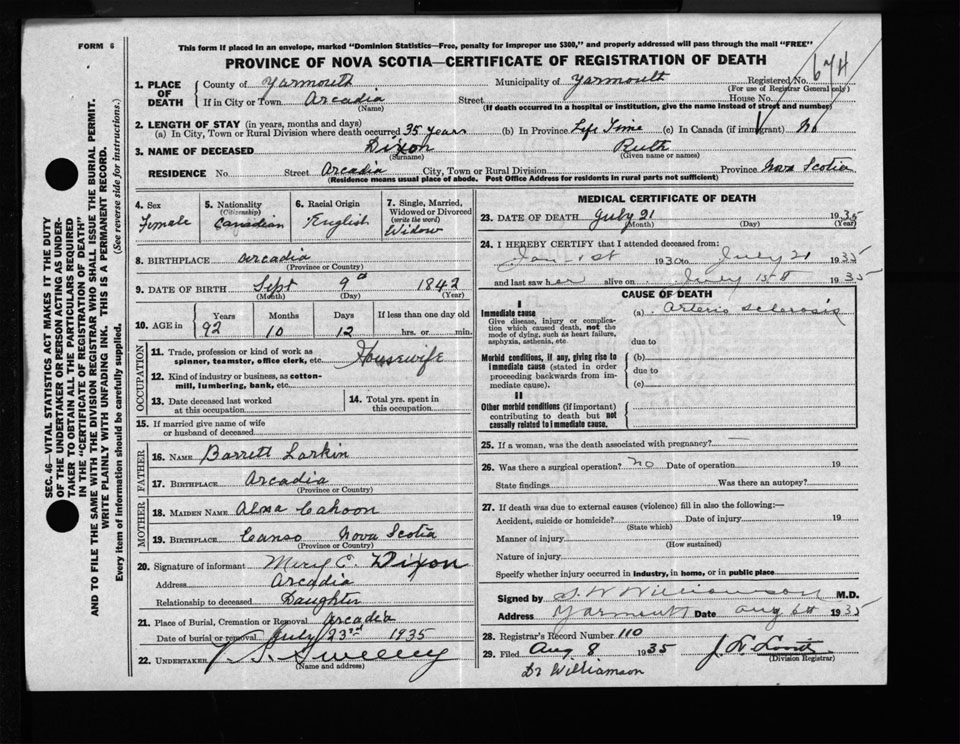 FORM 6
This form if placed in an envelope, marked "Dominion Statistics—Free, penalty for improper use $300," and properly addressed will pass through the mail "FREE"
PROVINCE OF NOVA SCOTIA—CERTIFICATE OF REGISTRATION OF DEATH
1. PLACE OF DEATH County of Yarmouth Municipality of Yarmouth Registered No. 674
(For use of Registrar General only)
If in City or Town Arcadia Street House No.
(Name) (If death occurred in a hospital or institution, give the name instead of street and number)
2. LENGTH OF STAY (in years, months and days)
(a) In City, Town or Rural Division where death occurred 35 years (b) In Province Life Time (c) In Canada (if immigrant) No
3. NAME OF DECEASED Dixon Ruth
(Surname) (Given name or names)
RESIDENCE No. Street Arcadia City, Town or Rural Division Province Nova Scotia
(Residence means usual place of abode. Post Office Address for residents in rural parts not sufficient)
SEC. 46—VITAL STATISTICS ACT MAKES IT THE DUTY
OF THE UNDERTAKER OR PERSON ACTING AS UNDER-
TAKER TO OBTAIN ALL THE PARTICULARS REQUIRED
IN THE "CERTIFICATE OF REGISTRATION OF DEATH"
AND TO FILE THE SAME WITH THE DIVISION REGISTRAR WHO SHALL ISSUE THE BURIAL PERMIT.
WRITE PLAINLY WITH UNFADING INK. THIS IS A PERMANENT RECORD.
Every item of information should be carefully supplied. (See reverse side for instructions.)
4. Sex Female
5. Nationality (Citizenship) Canadian
6. Racial Origin English
7. Single, Married, Widowed or Divorced (write the word) Widow
8. BIRTHPLACE Arcadia
(Province or Country)
9. DATE OF BIRTH Sept 9th 1842
(Month) (Day) (Year)
10. AGE in Years Months Days If less than one day old
92 10 12 hrs. or min.
OCCUPATION
11. Trade, profession or kind of work as spinner, teamster, office clerk, etc. Housewife
12. Kind of industry or business, as cotton-mill, lumbering, bank, etc.
13. Date deceased last worked at this occupation
14. Total yrs. spent in this occupation
15. If married give name of wife or husband of deceased
FATHER
16. NAME Barrett Larkin
17. BIRTHPLACE Arcadia
(Province or Country)
MOTHER
18. MAIDEN NAME Cahoon
19. BIRTHPLACE Canso Nova Scotia
(Province or Country)
20. Signature of informant C. Dixon
Address Arcadia
Relationship to deceased Daughter
21. Place of Burial, Cremation or Removal Arcadia
Date of burial or removal July 23rd 1935
22. UNDERTAKER Sweeny
(Name and address)
MEDICAL CERTIFICATE OF DEATH
23. DATE OF DEATH July 21 1935
(Month) (Day) (Year)
24. I HEREBY CERTIFY that I attended deceased from:
Jan 1st 1930 to July 21 1935
and last saw her alive on July 15th 1935
CAUSE OF DEATH
I
Immediate cause
Give disease, injury or complication which caused death, not the mode of dying, such as heart failure, asphyxia, asthenia, etc.
(a) Arterio sclerosis
due to
Morbid conditions, if any, giving rise to immediate cause (stated in order proceeding backwards from immediate cause).
(b)
due to
(c)
II
Other morbid conditions (if important) contributing to death but not causally related to immediate cause.
25. If a woman, was the death associated with pregnancy? —
26. Was there a surgical operation? No Date of operation 19
State findings Was there an autopsy?
27. If death was due to external causes (violence) fill in also the following:—
Accident, suicide or homicide? Date of injury 19
(State which)
Manner of injury
(How sustained)
Nature of injury
Specify whether injury occurred in industry, in home, or in public place
Signed by Williamson M.D.
Address Yarmouth Date Aug 6th 1935
28. Registrar's Record Number 110
29. Filed Aug 8 1935
(Division Registrar)
Dr Williamson